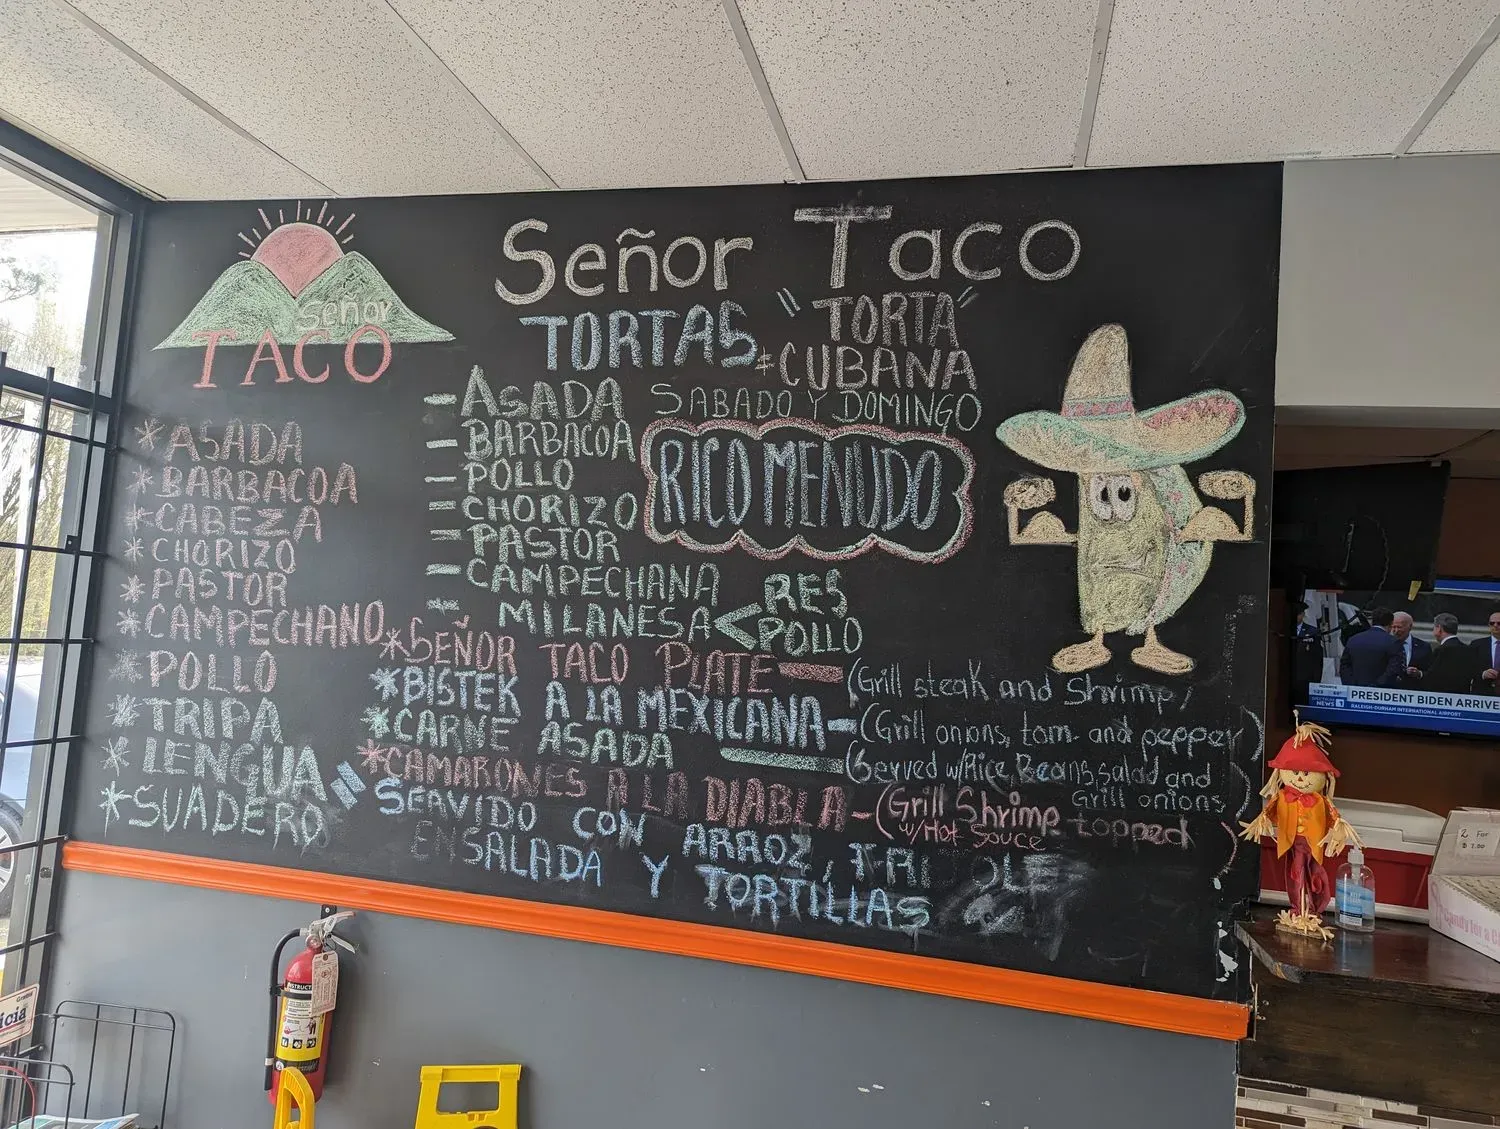 Señor
TACO
* ASADA
* BARBACOA
* CABEZA
* CHORIZO
* PASTOR
* CAMPECHANO
* POLLO
* TRIPA
* LENGUA
* SUADERO
Señor Taco
TORTAS
- ASADA
- BARBACOA
- POLLO
- CHORIZO
- PASTOR
- CAMPECHANA
- MILANESA < RES
POLLO
"TORTA"
CUBANA
SABADO Y DOMINGO
RICO MENUDO
* SEÑOR TACO PLATE - (Grill steak and Shrimp,
* BISTEK A LA MEXICANA - (Grill onions, tom. and pepper)
* CARNE ASADA - (Served w/Rice, Beans, salad and
Grill onions)
* CAMARONES A LA DIABLA - (Grill Shrimp topped
w/Hot Sauce)
" SERVIDO CON ARROZ,
ENSALADA Y TORTILLAS
PRESIDENT BIDEN ARRIVE
RALEIGH-DURHAM INTERNATIONAL AIRPORT
NEWS 1
2 For
icia